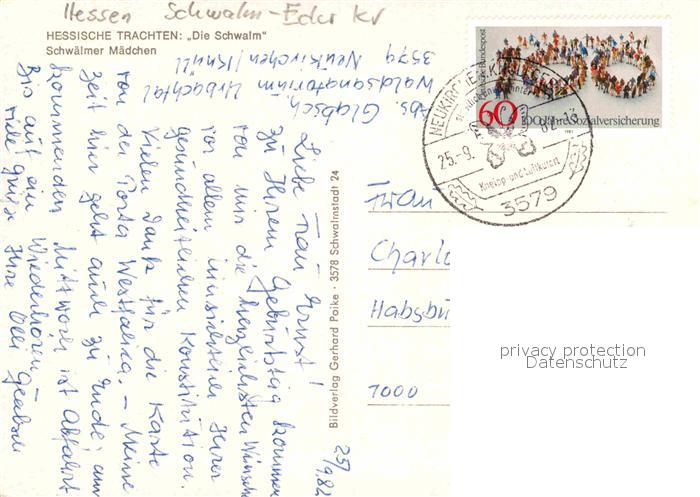 Hessen Schwalm-Eder kr
HESSISCHE TRACHTEN: „Die Schwalm"
Schwälmer Mädchen
Abs. Glabsch,
Waldsanatorium Urbachtal
3579 Neukirchen/Knüll
Liebe Frau Ernst!
Zu Ihrem Geburtstag kommen
von mir die herzlichsten Wünsche
vor allem hinsichtlich Ihrer
gesundheitlichen Konstitution.
Vielen Dank für die Karte
von der Porta Westfalica. – Meine
Zeit hier geht auch zu Ende; am
kommenden Mittwoch ist Abfahrt
Bis auf ein Wiederhören
viele Grüße Ihre
25/9.82
Bildverlag Gerhard Paike · 3578 Schwalmstadt 24
Deutsche Bundespost
60
100 Jahre Sozialversicherung
1981
NEUKIRCHEN, KNÜLLGEB
25.-9. 82.-
Kneipp- und Luftkurort
3579
Frau
Charlo
Habsbu
1000
privacy protection
Datenschutz